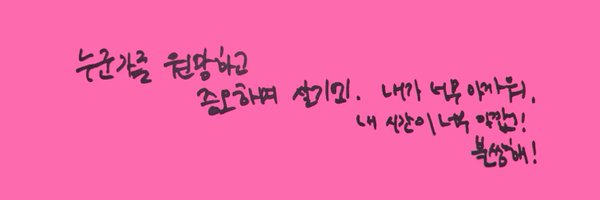 누군가를 원망하고
증오하며 살기엔. 내가 너무 아까워.
내 시간이 너무 아깝고!
불쌍해!